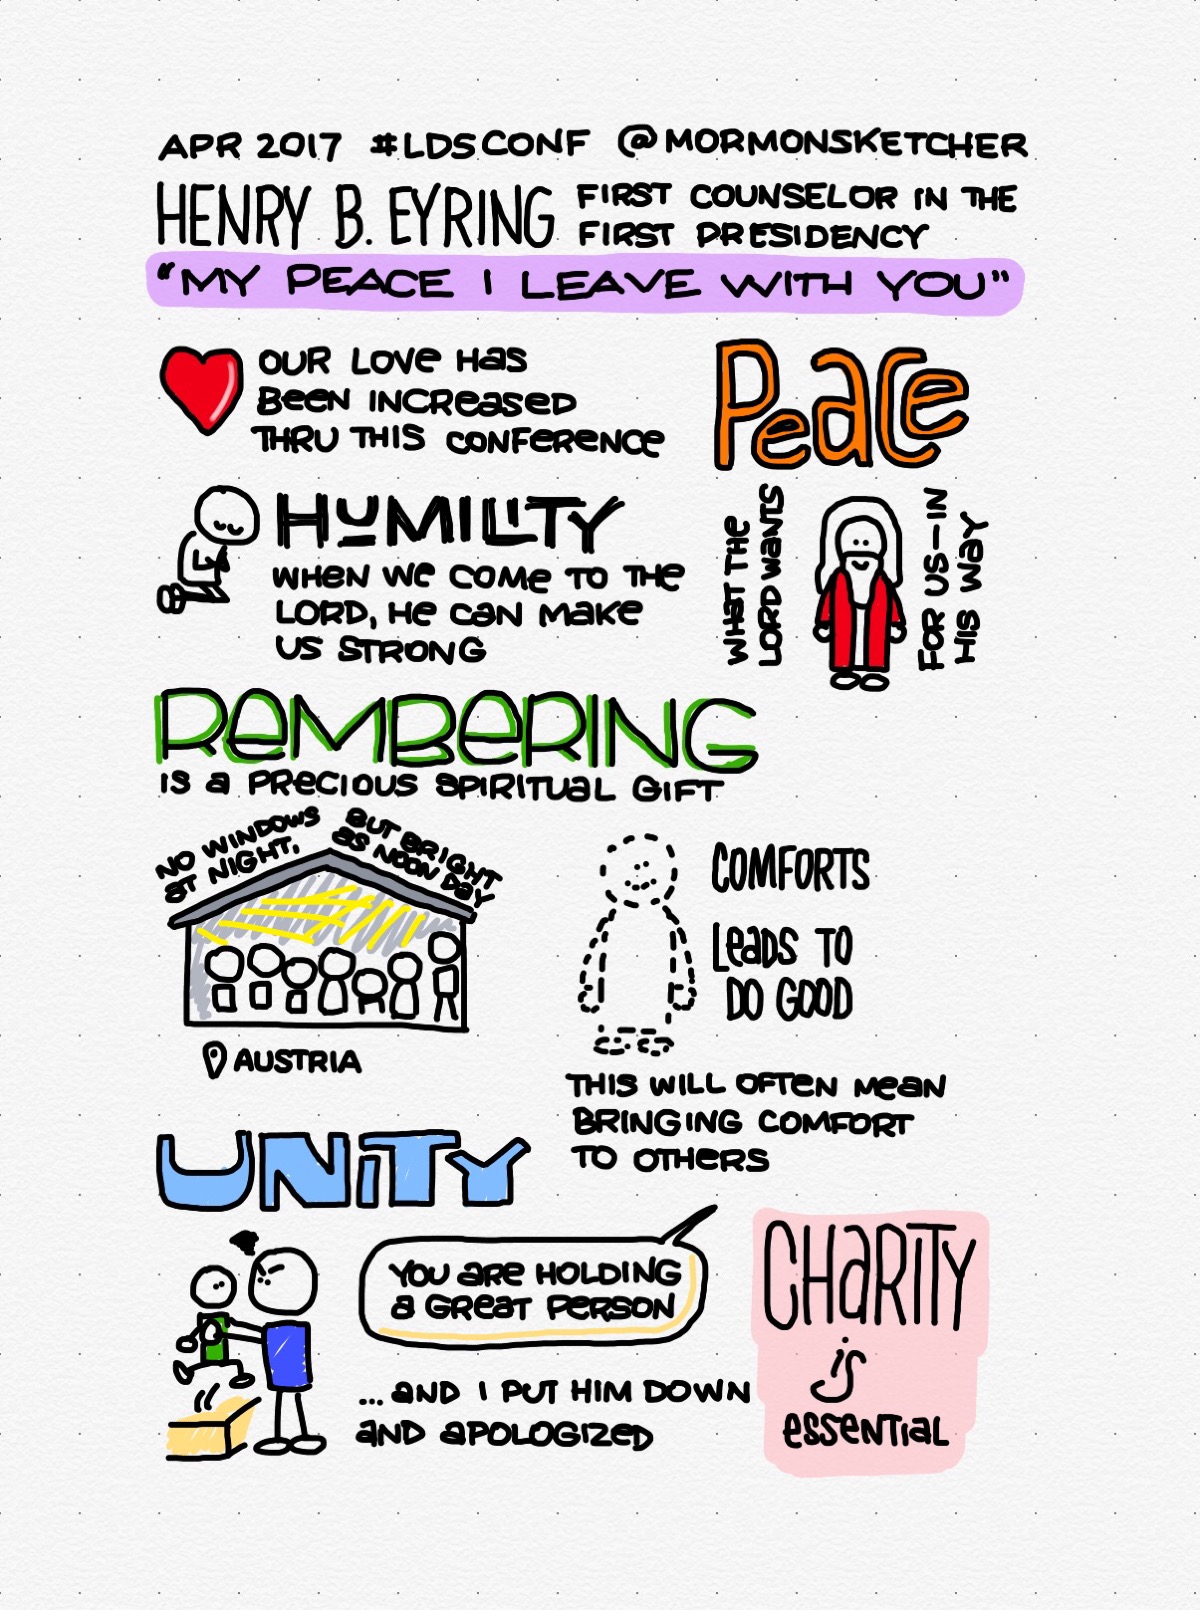 APR 2017 #LDSCONF @MORMONSKETCHER
HENRY B. EYRING
FIRST COUNSELOR IN THE
FIRST PRESIDENCY
"MY PEACE I LEAVE WITH YOU"
OUR LOVE HAS
BEEN INCREASED
THRU THIS CONFERENCE
PEACE
WHAT THE
LORD WANTS
FOR US—IN
HIS WAY
HUMILITY
WHEN WE COME TO THE
LORD, HE CAN MAKE
US STRONG
REMBERING
IS A PRECIOUS SPIRITUAL GIFT
NO WINDOWS
AT NIGHT,
BUT BRIGHT
AS NOON DAY
AUSTRIA
COMFORTS
LEADS TO
DO GOOD
THIS WILL OFTEN MEAN
BRINGING COMFORT
TO OTHERS
UNITY
YOU ARE HOLDING
A GREAT PERSON
... AND I PUT HIM DOWN
AND APOLOGIZED
CHARITY
is
ESSENTIAL